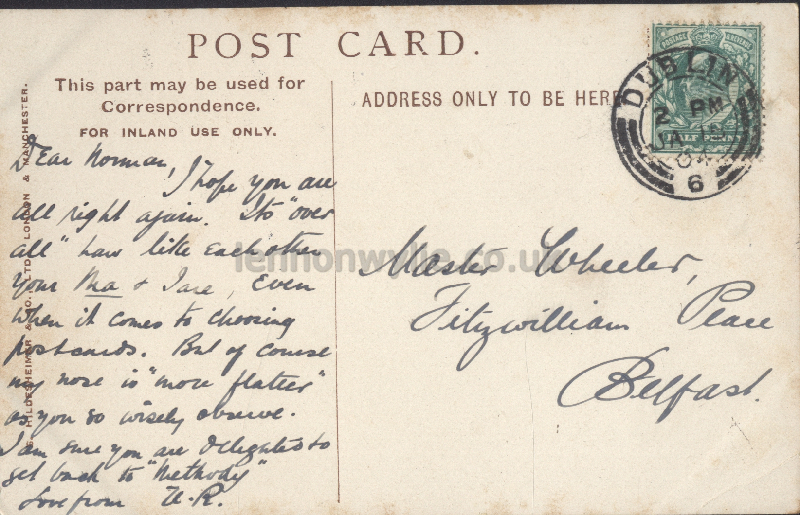 POST CARD.
This part may be used for
Correspondence.
FOR INLAND USE ONLY.
ADDRESS ONLY TO BE HERE
POSTAGE REVENUE
HALF PENNY
DUBLIN
2 PM
JA
04
6
HILDESHEIMER & CO. LTD. LONDON & MANCHESTER.
Dear Norman,
I hope you are
all right again. Its "over
all" how like each other
your Ma & I are, even
when it comes to choosing
postcards. But of course
my nose is "more flatter"
as you so wisely observe.
I am sure you are delighted to
get back to "Methody"
Love from U.R.
Master Wheeler,
Fitzwilliam Place
Belfast.
lennonwylie.co.uk